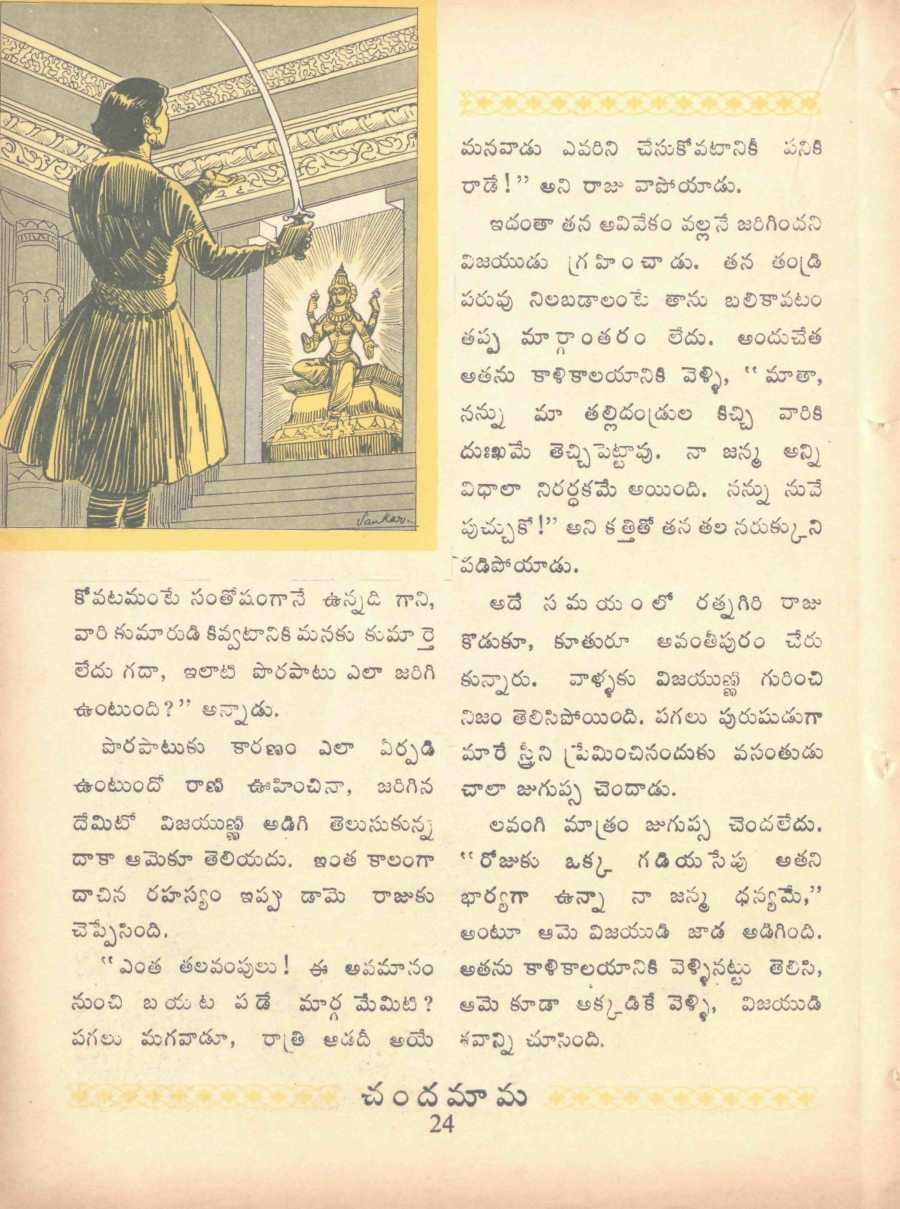 Sankar..
కోవటమంటే సంతోషంగానే ఉన్నది గాని,
వారి కుమారుడి కివ్వటానికి మనకు కుమార్తె
లేదు గదా, ఇలాటి పొరపాటు ఎలా జరిగి
ఉంటుంది?” అన్నాడు.
పొరపాటుకు కారణం ఎలా ఏర్పడి
ఉంటుందో రాణి ఊహించినా, జరిగిన
దేమిటో విజయుణ్ణి అడిగి తెలుసుకున్న
దాకా ఆమెకూ తెలియదు. ఇంత కాలంగా
దాచిన రహస్యం ఇప్పు డామె రాజుకు
చెప్పేసింది.
“ఎంత తలవంపులు! ఈ అవమానం
నుంచి బయట పడే మార్గ మేమిటి?
పగలు మగవాడూ, రాత్రి ఆడదీ అయే
మనవాడు ఎవరిని చేసుకోవటానికీ పనికి
రాడే!” అని రాజు వాపోయాడు.
ఇదంతా తన అవివేకం వల్లనే జరిగిందని
విజయుడు గ్రహించాడు. తన తండ్రి
పరువు నిలబడాలంటే తాను బలికావటం
తప్ప మార్గాంతరం లేదు. అందుచేత
అతను కాళికాలయానికి వెళ్ళి, “మాతా,
నన్ను మా తల్లిదండ్రుల కిచ్చి వారికి
దుఃఖమే తెచ్చిపెట్టావు. నా జన్మ అన్ని
విధాలా నిరర్ధకమే అయింది. నన్ను నువే
పుచ్చుకో!” అని కత్తితో తన తల నరుక్కుని
పడిపోయాడు.
అదే సమయంలో రత్నగిరి రాజు
కొడుకూ, కూతురూ అవంతీపురం చేరు
కున్నారు. వాళ్ళకు విజయుణ్ణి గురించి
నిజం తెలిసిపోయింది. పగలు పురుషుడుగా
మారే స్త్రీని ప్రేమించినందుకు వసంతుడు
చాలా జుగుప్స చెందాడు.
లవంగి మాత్రం జుగుప్స చెందలేదు.
“రోజుకు ఒక్క గడియసేపు అతని
భార్యగా ఉన్నా నా జన్మ ధన్యమే,”
అంటూ ఆమె విజయుడి జాడ అడిగింది.
అతను కాళికాలయానికి వెళ్ళినట్టు తెలిసి,
ఆమె కూడా అక్కడికే వెళ్ళి, విజయుడి
శవాన్ని చూసింది.
చందమామ
24